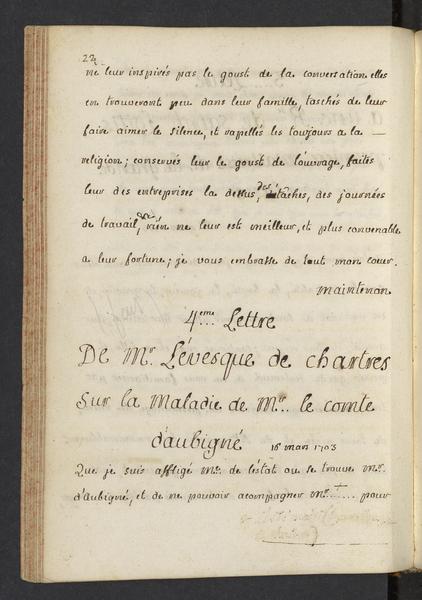 22
ne leur inspirés pas le goust de la conversation elles
en trouveront peu dans leur famille, taschés de leur
faire aimer le silence, et rapellés les toujours a la
religion; conservés leur le goust de l'ouvrage, faites
leur des entreprises la dessus, des tâches, des journées
de travail, rien ne leur est meilleur, et plus convenable
a leur fortune; je vous embrasse de tout mon coeur.
maintenon
4eme Lettre
De Mr. L'évesque de chartres
sur la Maladie de Mr. le comte
d'aubigné 16 mars 1703
Que je suis affligé Me. de l'estat ou se trouve Mr.
d'aubigné, et de ne pouvoir acompagner Mr. pour